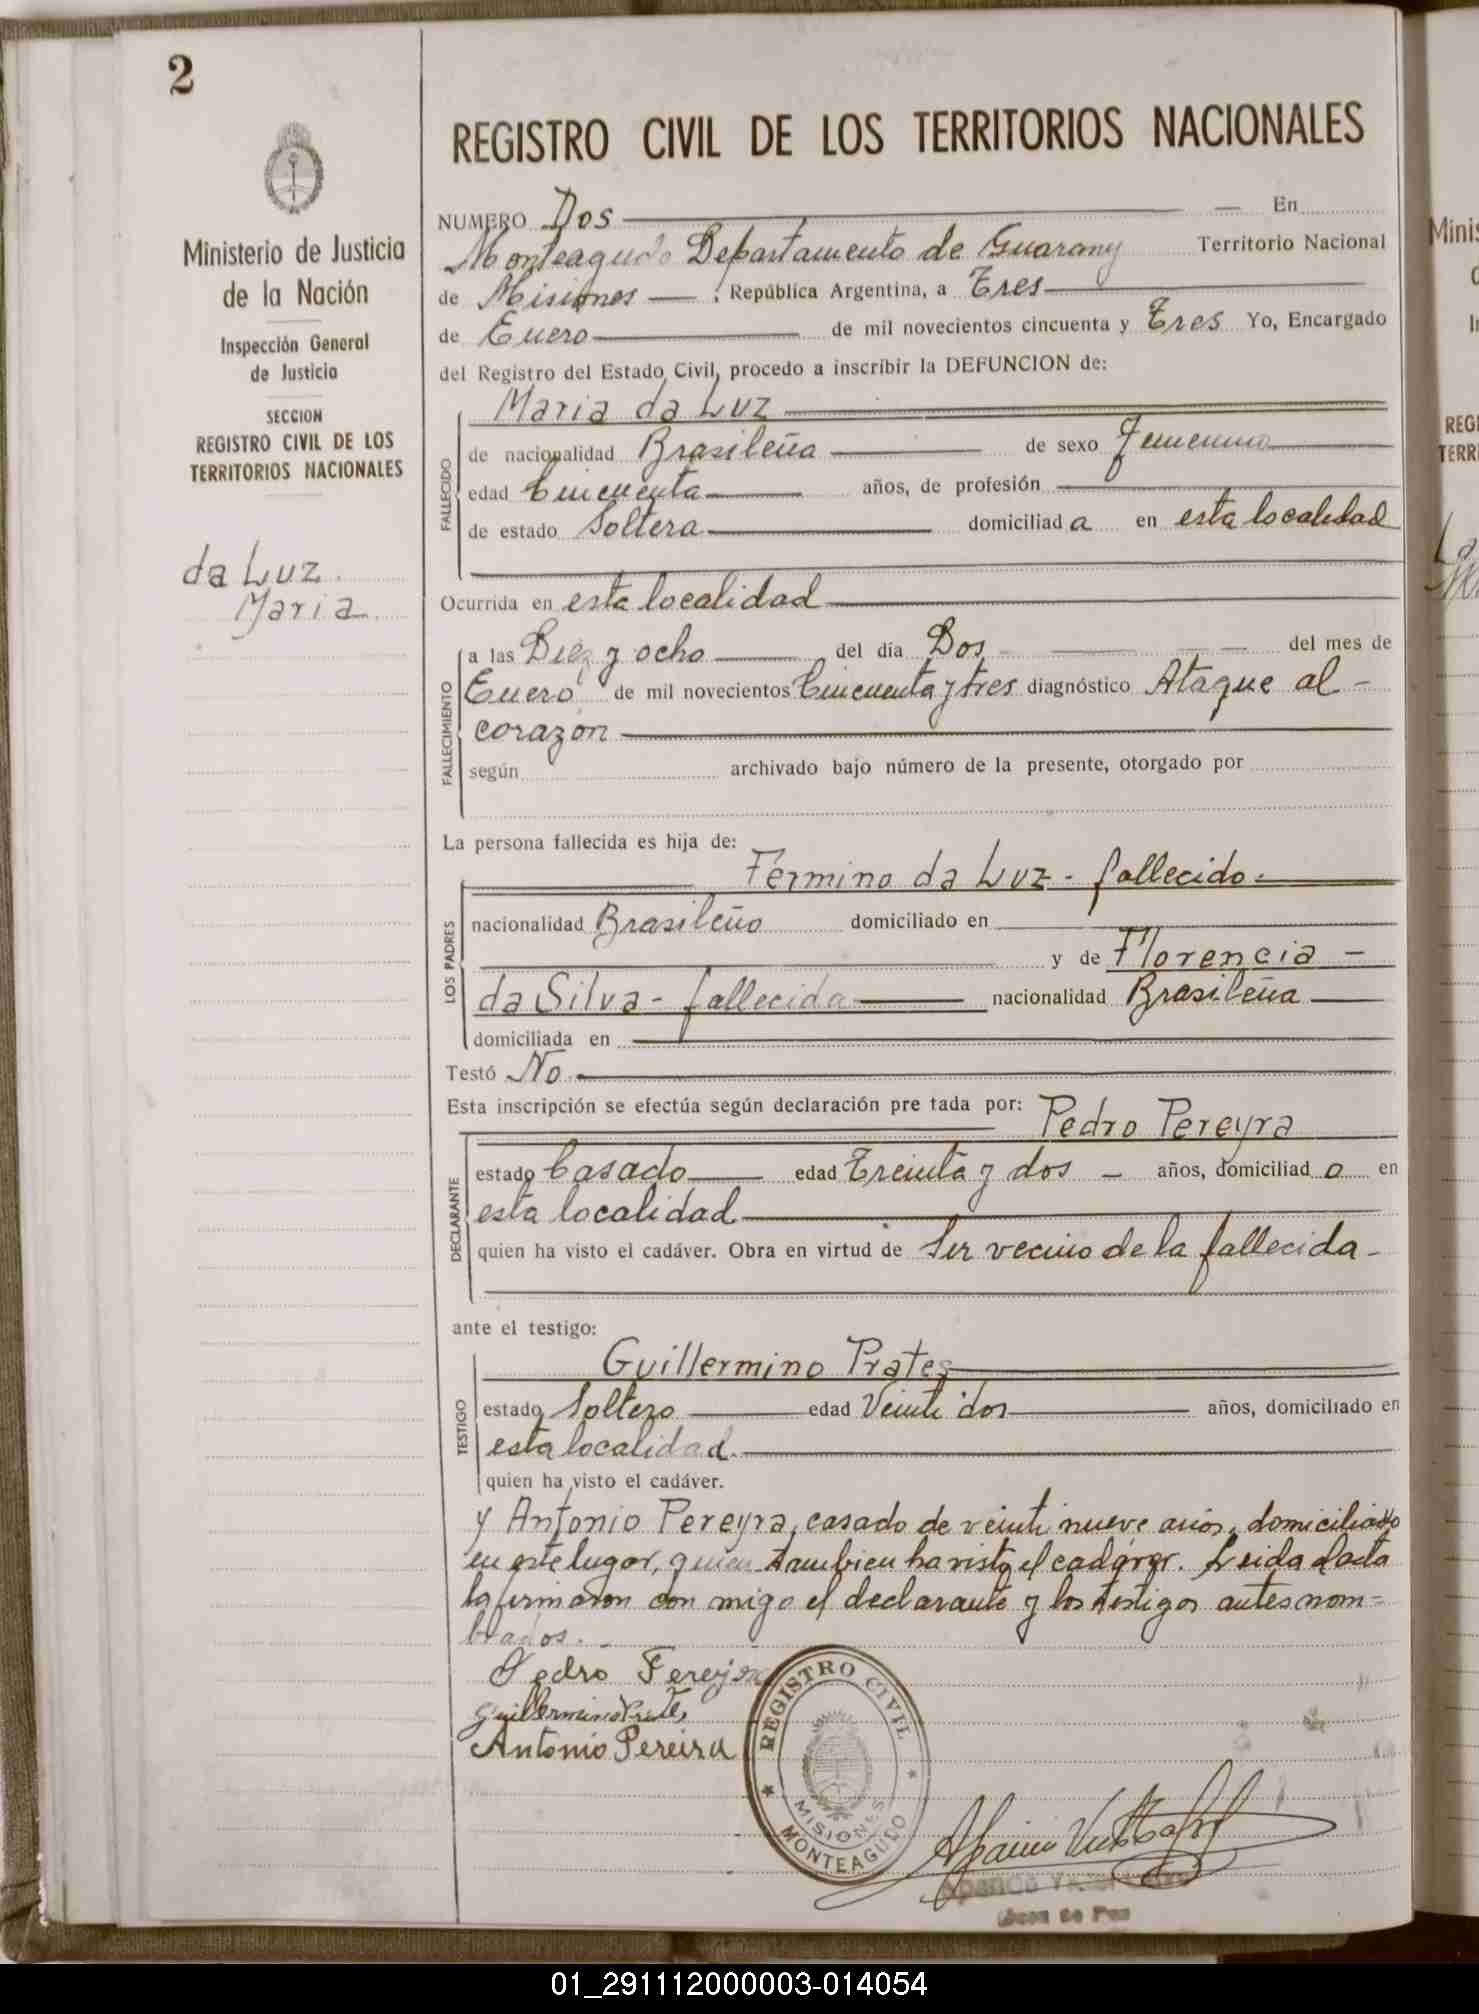 2
Ministerio de Justicia
de la Nación
Inspección General
de Justicia
SECCION
REGISTRO CIVIL DE LOS
TERRITORIOS NACIONALES
da Luz
Maria
REGISTRO CIVIL DE LOS TERRITORIOS NACIONALES
NUMERO Dos En
Monteagudo Departamento de Guarany Territorio Nacional
de Misiones, República Argentina, a Tres
de Enero de mil novecientos cincuenta y Tres Yo, Encargado
del Registro del Estado Civil, procedo a inscribir la DEFUNCION de:
FALLECIDO
Maria da Luz
de nacionalidad Brasileña de sexo femenino
edad Cincuenta años, de profesión
de estado Soltera domiciliad a en esta localidad
Ocurrida en esta localidad
FALLECIMIENTO
a las Diez y ocho del día Dos del mes de
Enero de mil novecientos Cincuenta y tres diagnóstico Ataque al -
corazón
según archivado bajo número de la presente, otorgado por
La persona fallecida es hija de:
LOS PADRES
Fermino da Luz - fallecido -
nacionalidad Brasileño domiciliado en
y de Florencia -
da Silva - fallecida nacionalidad Brasileña
domiciliada en
Testó No
Esta inscripción se efectúa según declaración pre tada por:
DECLARANTE
Pedro Pereyra
estado Casado edad Treinta y dos - años, domiciliad o en
esta localidad
quien ha visto el cadáver. Obra en virtud de Ser vecino de la fallecida -
ante el testigo:
TESTIGO
Guillermino Prates
estado Soltero edad Veinti dos años, domiciliado en
esta localidad.
quien ha visto el cadáver.
y Antonio Pereyra, casado de veinti nueve años, domiciliado
en este lugar, quien tambien ha visto el cadáver. Leida el acta
la firmaron con migo el declarante y los testigos antes nom=
brados. -
Pedro Pereyra
Guillermino Prates
Antonio Pereira
REGISTRO CIVIL
MISIONES
MONTEAGUDO
Juez de Paz
Minis
REGI
TERRI
01_291112000003-014054